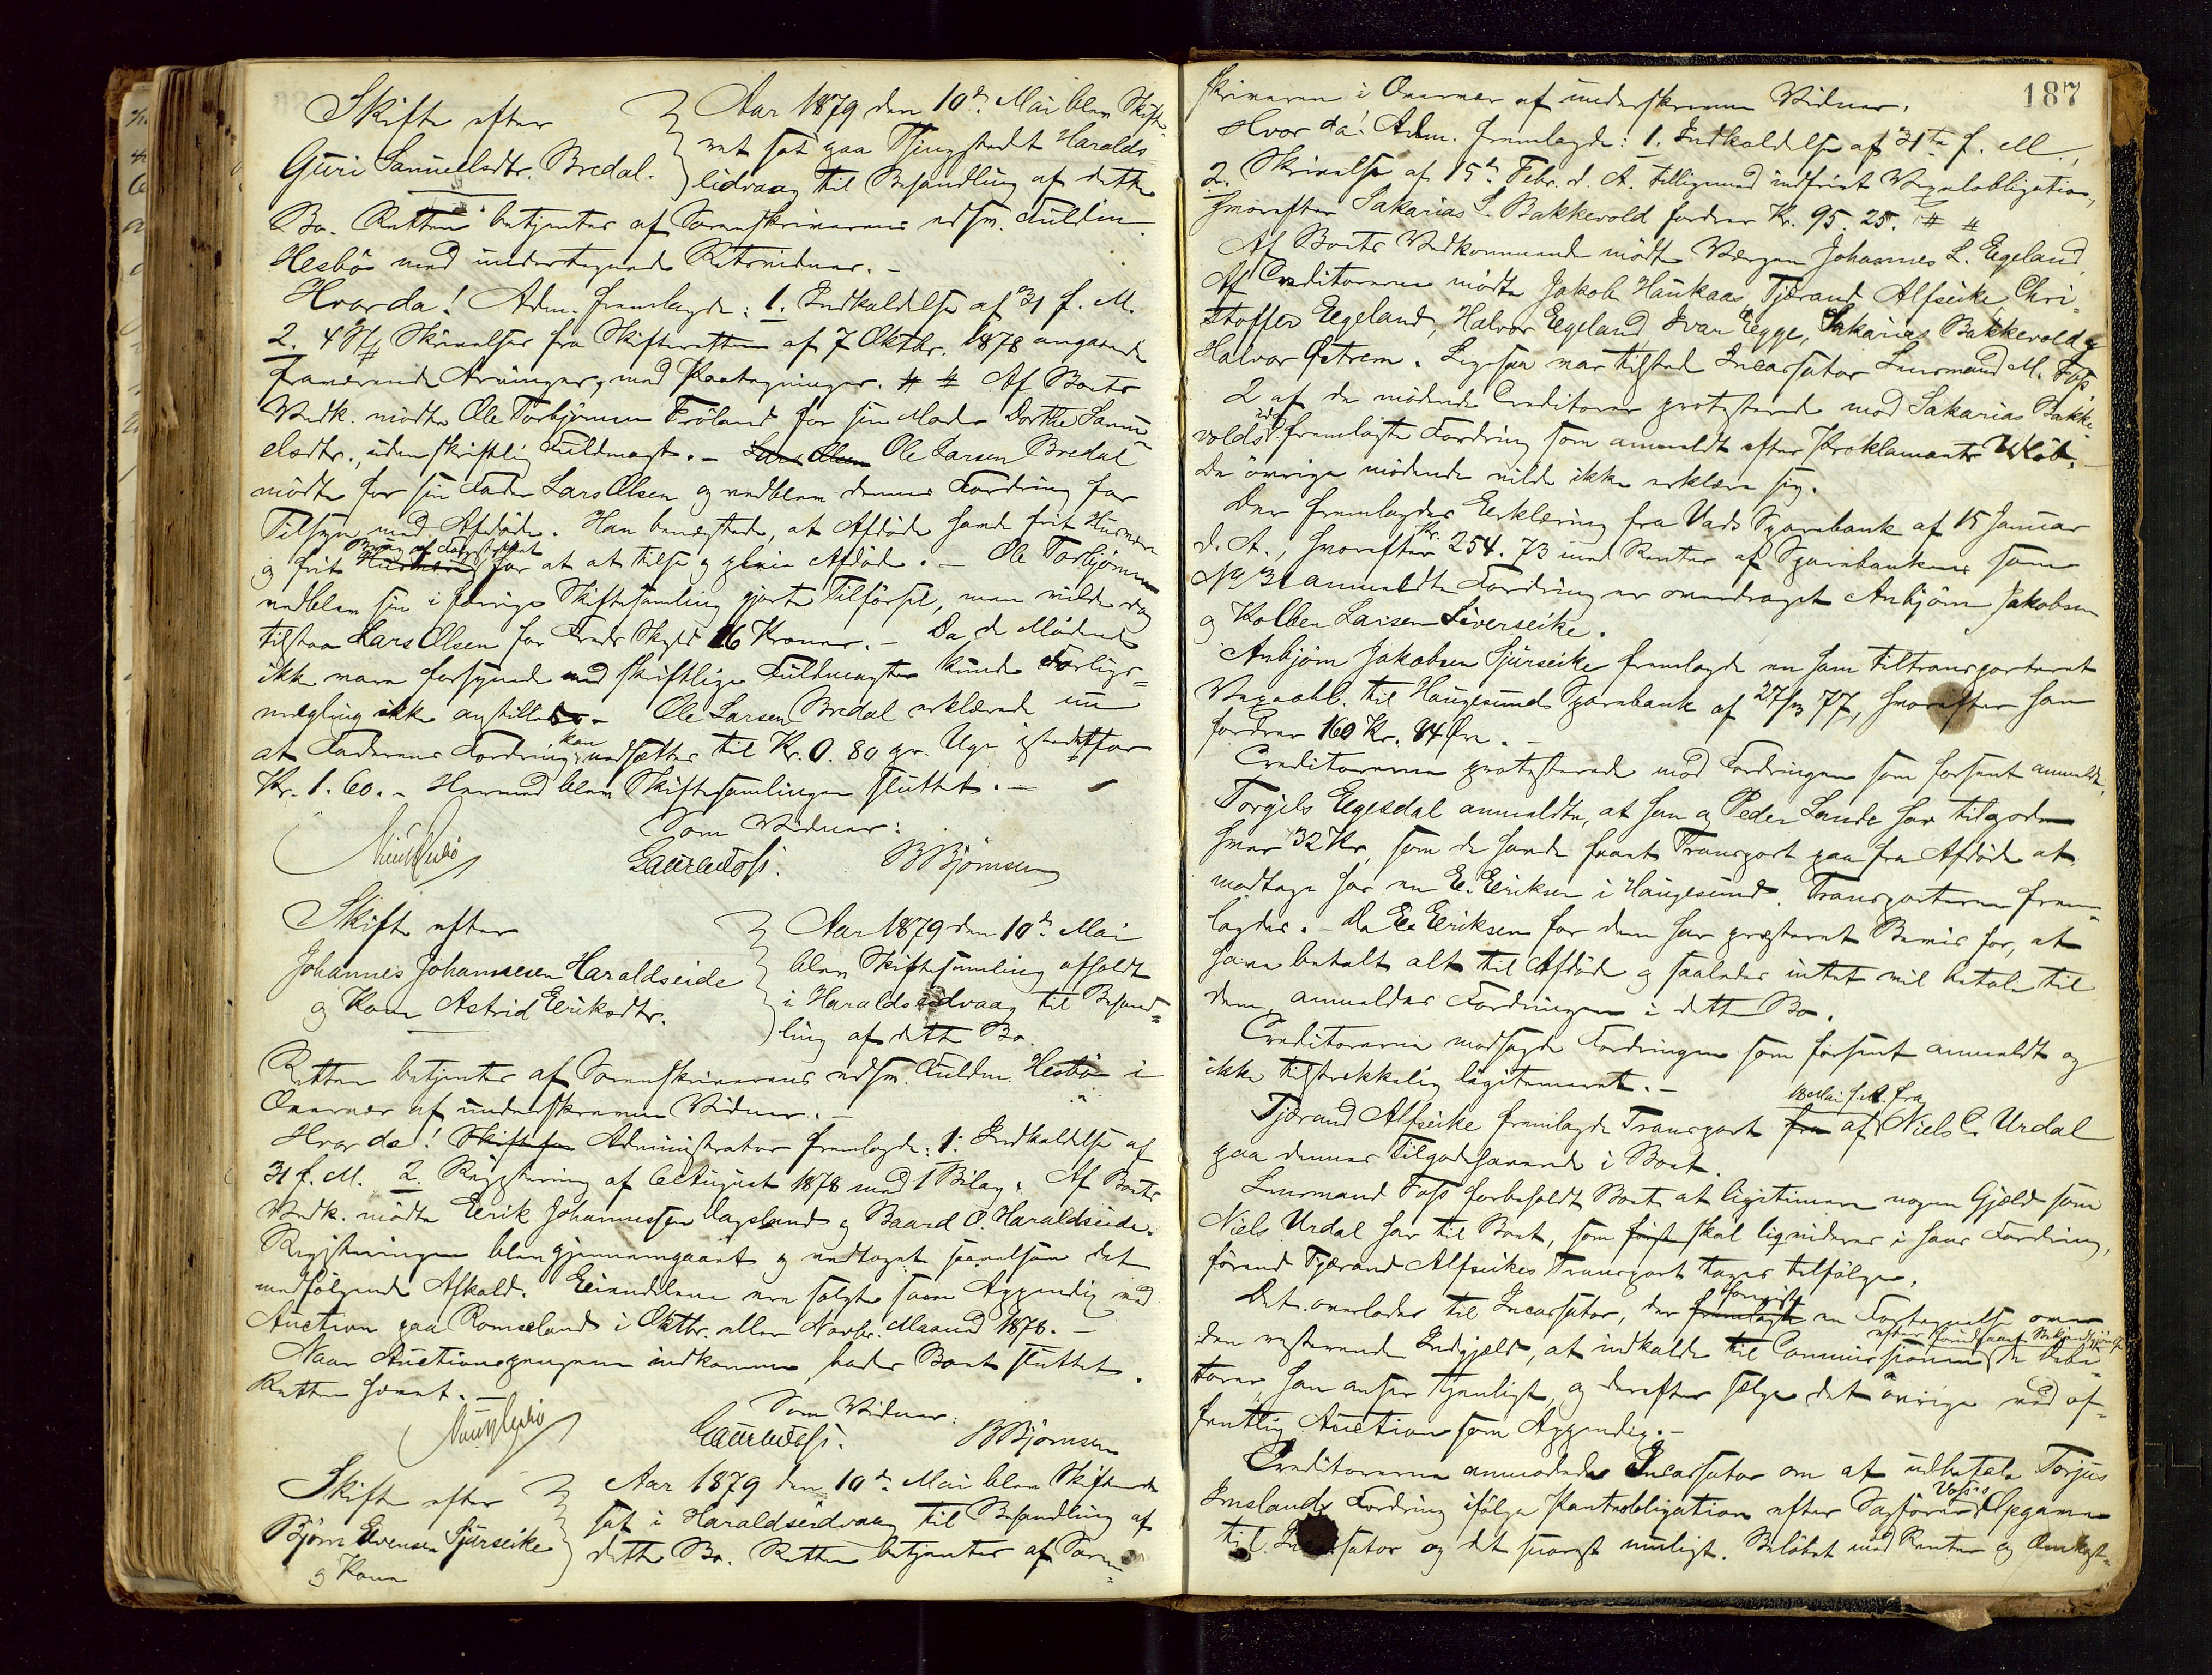 Skifte efter
Guri Samuelsdtr. Bredal.
Aar 1879 den 10de Mai blev Skifte-
ret sat paa Thingstedet Haralds
eidvaag til Behandling af dette
Bo. Retten betjentes af Sorenskriverens edsv. Fuldm.
Hesbö med undertegnede Retsvidner. -
Hvorda! Adm. fremlagde: 1. Indkaldelse af 31 f. M.
2. 4 St. Skrivelser fra Skifteretten af 7 Oktbr. 1878 angaaende
fraværende Arvinger, med Paategninger. # # Af Boets
Vedk. mödte Ole Torbjörnsen Fröland for sin Moder Dorthe Samu-
elsdtr., uden skriftlig Fuldmagt. - Lars Olsen Ole Larsen Bredal
mödte for sin Fader Lars Olsen og vedblev dennes Fordring for
Tilsyn med Afdöde. Han benegtede, at Afdöde havde frit Husvære
og frit Husvære for at at tilse og pleie Afdöde. - Ole Torbjörnsen
vedblev sin i forrige Skiftesamling gjorte Tilförsel, men vilde dog
tilstaa Lars Olsen for Freds Skyld 16 Kroner. - Da de Mödende
ikke vare forsynede med skriftlige Fuldmagter kunde Forligs-
mægling ikke anstilles. - Ole Larsen Bredal erklærede nu
at Faderens Fordring kan nedsættes til Kr. 0.80 pr. Uge istedetfor
Kr. 1.60. - Hermed blev Skiftesamlingen sluttet. -
Som Vidner:
Laur. M. Foss. B Bjørnsen
Skifte efter
Johannes Johannesen Haraldseide
og Kone Astrid Eeriksdtr.
Aar 1879 den 10de Mai
blev Skiftesamling afholdt
i Haraldseidvaag til Behand-
ling af dette Bo.
Retten betjentes af Sorenskriverens edsv. Fuldm. Hesbö i
Overvær af underskrevne Vidner. -
Hvor da! Skiftefor Administrator fremlagde: 1. Indkaldelse af
31 f. M. 2. Registrering af 6 August 1878 med 1 Bilag. Af Boets
Vedk. mödte Eerik Johannessen Dagsland og Baard O. Haraldseide.
Registreringen blev gjennemgaaet og vedtaget saavelsom det
medfölgende Afkald. Eiendelene ere solgte som Appendix ved
Auction paa Romseland i Oktbr. eller Novbr. Maaned 1878. -
Naar Auctionspengene indkomme, bades Boet sluttet.
Retten hævet. -
Som Vidner:
Laur. M. Foss. B Bjørnsen
Skifte efter
Björn Evensen Sjurseike
og Kone
Aar 1879 den 10de Mai blev Skifteret
sat i Haraldseidvaag til Behandling af
dette Bo. Retten betjentes af Soren-
187
skriveren i Overvær af underskrevne Vidner.
Hvor da! Adm. fremlagde: 1. Indkaldelse af 31te f. M.,
2. Skrivelse af 15de Febr. d. A. tilligemed indfriet Vexelobligation,
hvorefter Sakarias S. Bakkevold fordrer Kr. 95.25. # #
Af Boets Vedkommende mödte Værgen Johannes L. Egeland.
Af Creditorerne mödte Jakob Haukaas, Tjærand Alfseike, Chri-
stoffer Egeland, Halvor Egeland, Ivar Egge, Sakarias Bakkevold og
Halvor Östrem. Ligesaa var tilstede Incassator Lensmand M. Foss
2 af de mödende Creditorer protesterede mod Sakarias Bakke-
volds fremlagte Fordring som anmeldt efter Proklamaets Udlöb. -
De övrige mödende vilde ikke erklære sig.
Der fremlagdes Erklæring fra Vads Sparebank af 15 Januar
d. A., hvorefter Kr. 254.73 med Renter af Sparebankens som
No 31 anmeldte Fordring er overdraget Anbjörn Jakobsen
og Kolben Larsen Siverseike.
Anbjörn Jakobsen Sjurseike fremlagde en ham tiltransporteret
Vexelobl. til Haugesunds Sparebank af 27/3 77, hvorefter han
fordrer 160 Kr. 84 Øre. -
Creditorerne protesterede mod Fordringen som forsent anmeldt.
Torgils Egesdal anmeldte, at han og Peder Lande har tilgode
hver 32 Kr, som de havde faaet Transport paa fra Afdöde at
modtage hos en E. Eriksen i Haugesund. Transporterne frem-
lagdes. - Da E. Eriksen for dem har præsteret Bevis for, at
have betalt alt til Afdöde og saaledes intet vil betale til
dem, anmeldes Fordringen i dette Bo.
Creditorerne modsagde Fordringen som forsent anmeldt og
ikke tilstrekkelig legitimeret. -
Tjærand Alfseike fremlagde Transport fra af 18 Mai f. A. fra Niels C. Urdal
paa dennes Tilgodehavende i Boet.
Lensmand Foss forbeholdt Boet at legitimere nogen Gjæld som
Niels Urdal har til Boet, som först skal liqvideres i hans Fordring,
förend Tjærand Alfseikes Transport tages tilfölge.
Det overlodes til Incassator, der fremlagde foreviste en Fortegnelse over
den resterende Indgjæld, at indkalde til Commissionen efter foregaaet Bekjendtgjörelse de Debi-
torer han anser tjenligst, og derefter sælge det övrige ved of-
fentlig Auction som Appendix. -
Creditorerne anmodede Incassator om at udbetale Torjus
Imslands Fordring ifölge Pantobligation efter Sagförer Vosss Opgave
til Incassator og det snarest muligt. Belöbet med Renter og Omkost-